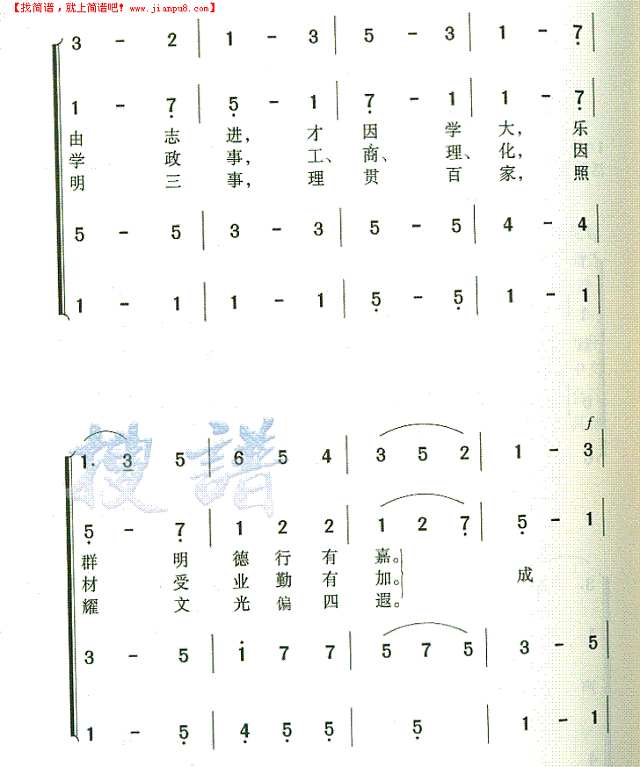 【找简谱，就上简谱吧！www.jianpu8.com】
3 - 2 | 1 - 3 | 5 - 3 | 1 - 7 |
1 - 7 | 5 - 1 | 7 - 1 | 1 - 7 |
由 志 进， 才 因 学 大， 乐
学 政 事， 工、 商、 理、 化， 因
明 三 事， 理 贯 百 家， 照
5 - 5 | 3 - 3 | 5 - 5 | 4 - 4 |
1 - 1 | 1 - 1 | 5 - 5 | 1 - 1 |
搜谱
f
1· 3 5 | 6 5 4 | 3 5 2 | 1 - 3 |
5 - 7 | 1 2 2 | 1 2 7 | 5 - 1 |
群 明 德 行 有 嘉。
材 受 业 勤 有 加。 成
耀 文 光 偏 四 遐。
3 - 5 | 1 7 7 | 5 7 5 | 3 - 5 |
1 - 5 | 4 5 5 | 5 | 1 - 1 |